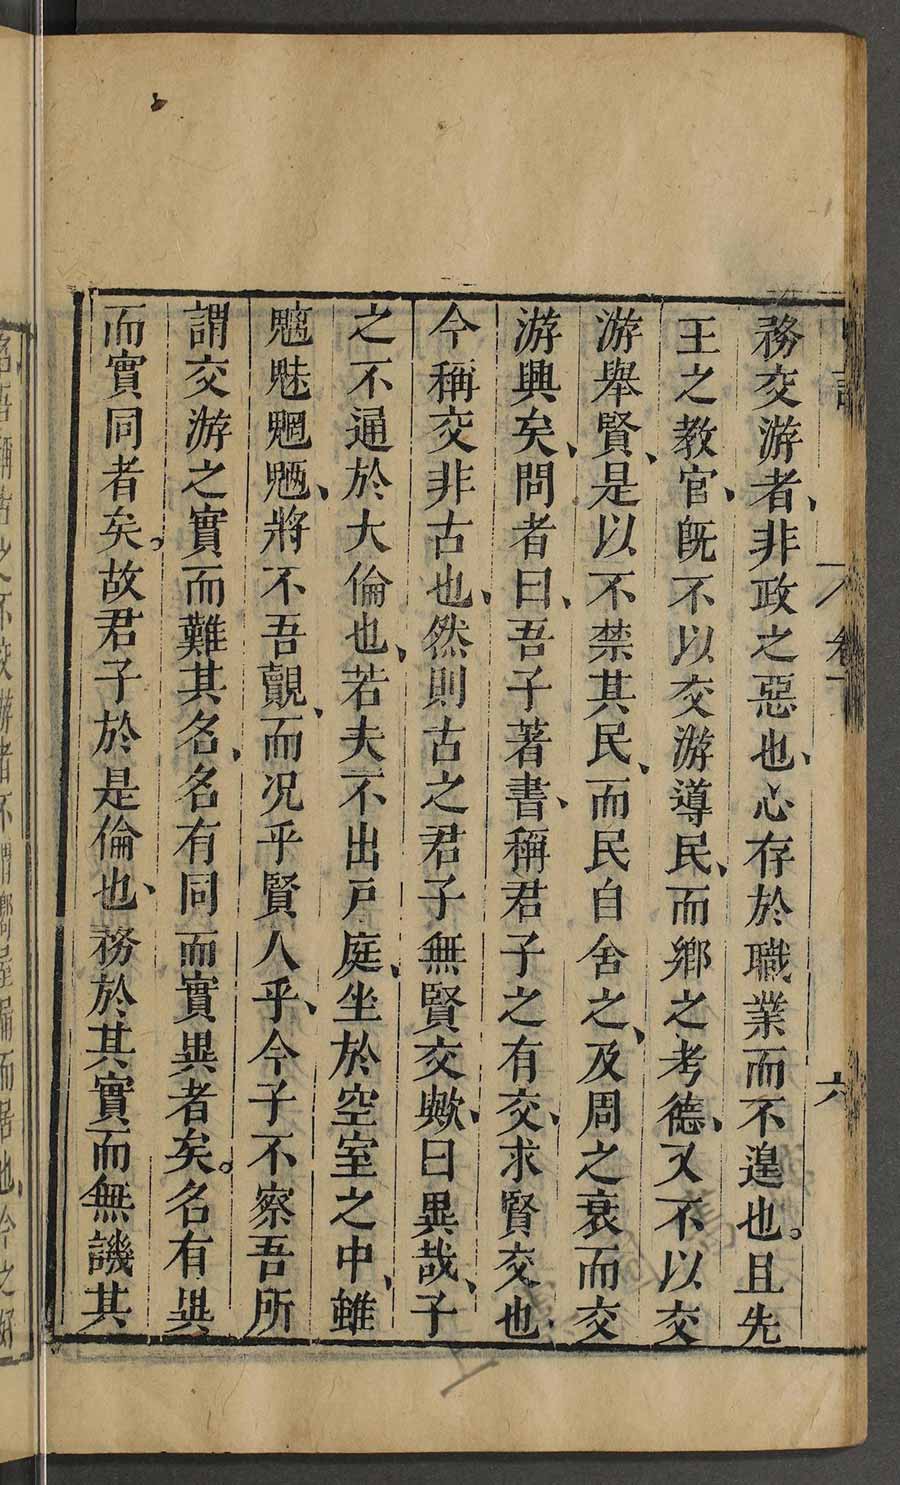 務交游者、非政之惡也、心存於職業而不遑也。且先
王之教官、既不以交游導民、而鄉之考德、又不以交
游舉賢、是以不禁其民、而民自舍之、及周之衰而交
游興矣、問者曰、吾子著書、稱君子之有交、求賢交也
今稱交非古也、然則古之君子無賢交歟、曰異哉、子
之不通於大倫也、若夫不出戶庭、坐於空室之中、雖
魑魅魍魎、將不吾覿、而况乎賢人乎、今子不察吾所
謂交游之實而難其名、名有同而實異者矣。名有異
而實同者矣。故君子於是倫也、務於其實而無譏其
卷一
六